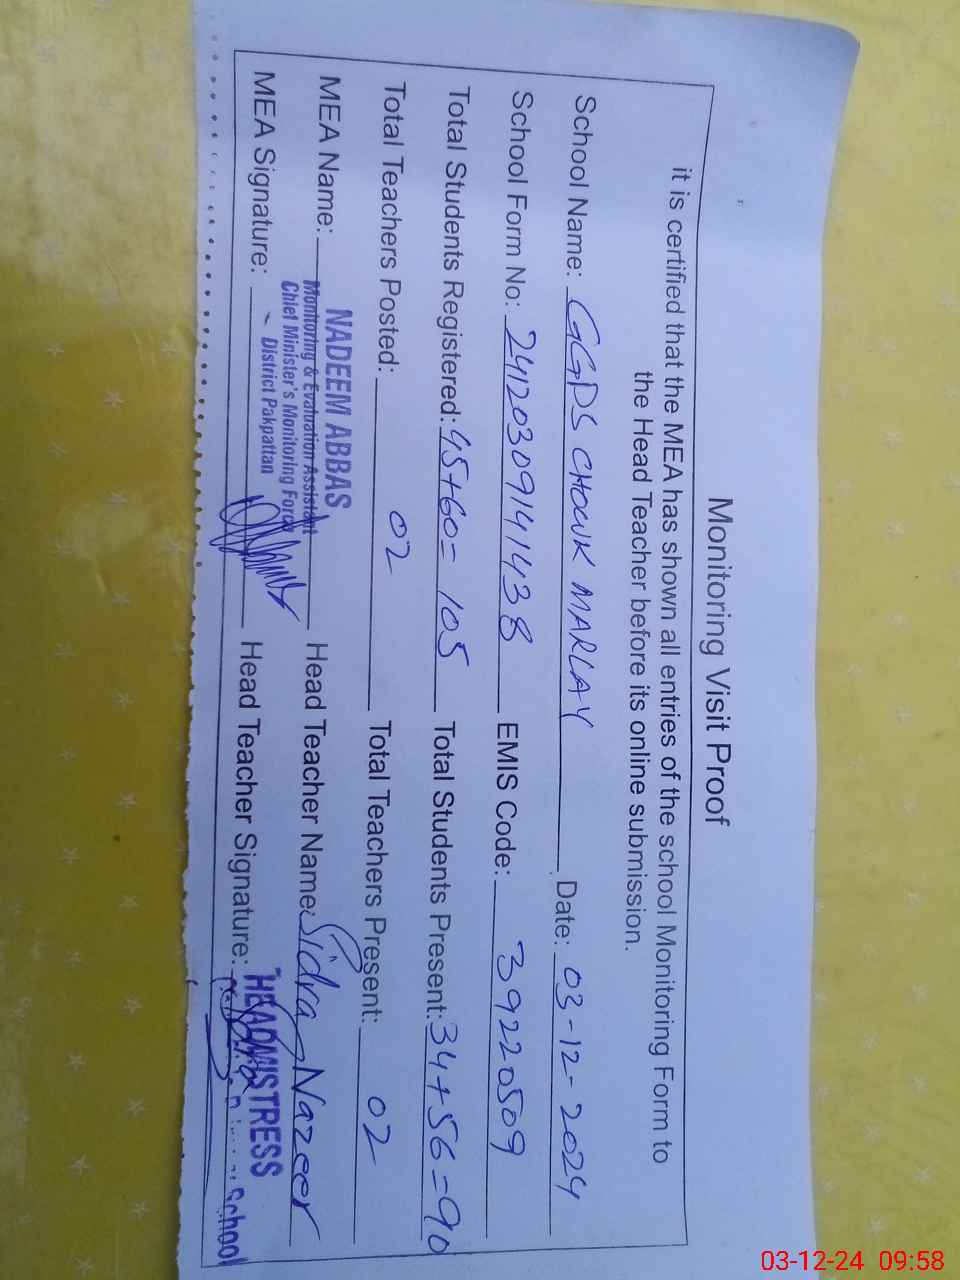 Monitoring Visit Proof
it is certified that the MEA has shown all entries of the school Monitoring Form to
the Head Teacher before its online submission.
School Name: GGPS CHOWK MARLAY Date: 03-12-2024
School Form No: 24120309141438 EMIS Code: 39220509
Total Students Registered: 45+60= 105 Total Students Present: 34+56=90
Total Teachers Posted: 02 Total Teachers Present: 02
MEA Name: NADEEM ABBAS Head Teacher Name: Sidra Nazeer
Monitoring & Evaluation Assistant
Chief Minister's Monitoring Force
District Pakpattan
MEA Signature: Head Teacher Signature:
HEADMISTRESS
School
03-12-24 09:58